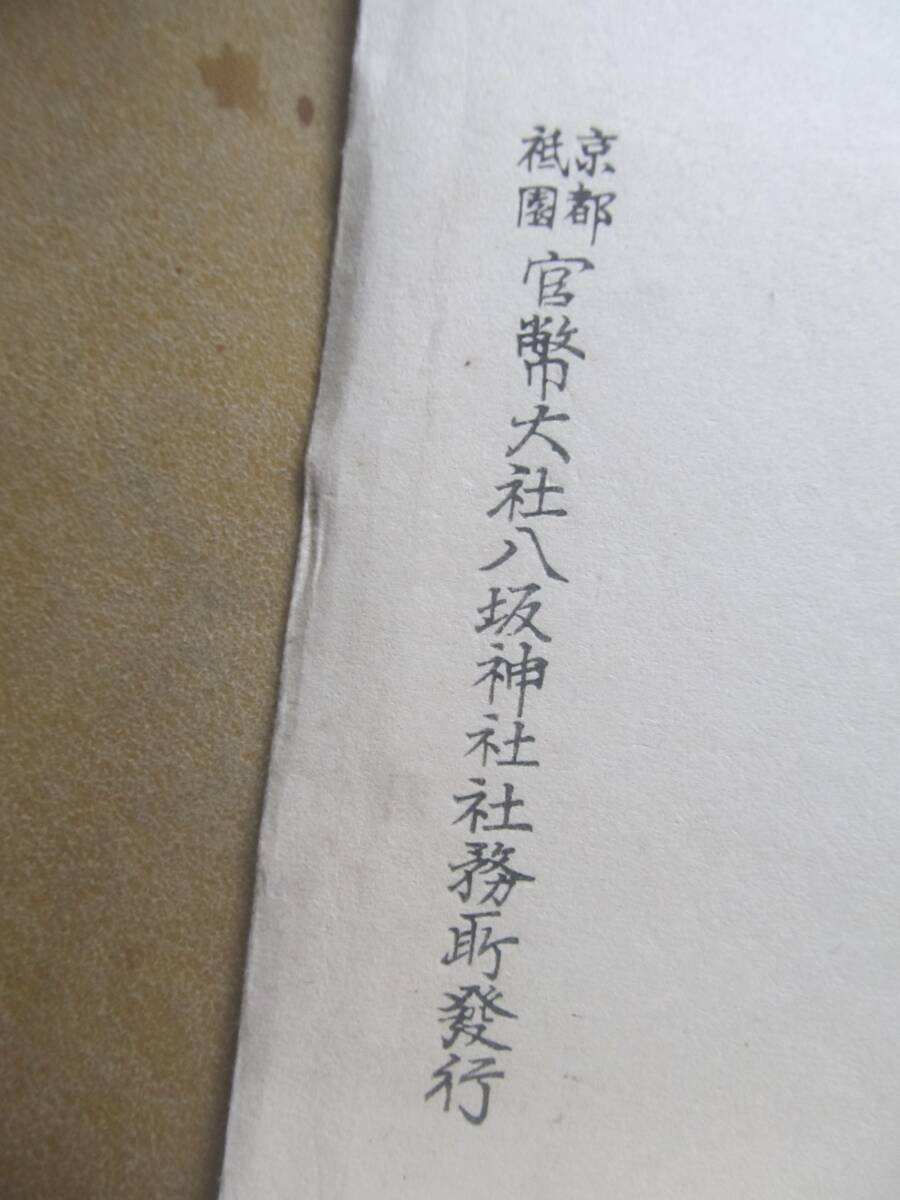 京都
祇園
官幣大社八坂神社社務所發行